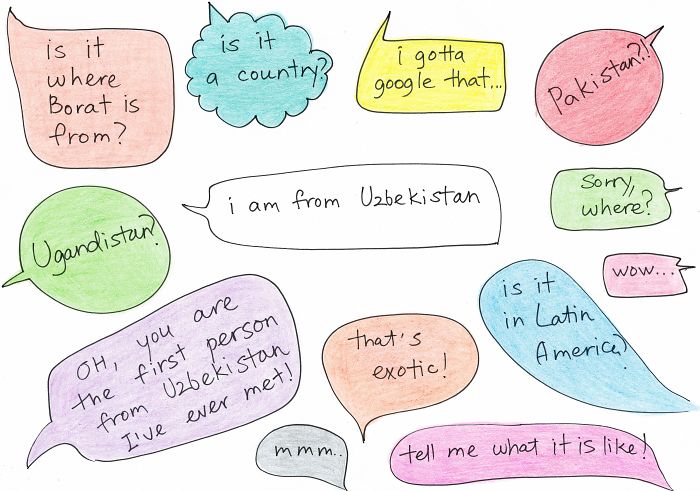 is it
where
Borat is
from?
is it
a country?
i gotta
google that...
Pakistan?!
i am from Uzbekistan
Sorry,
where?
Ugandistan?
wow...
OH, you are
the first person
from Uzbekistan
I've ever met!
that's
exotic!
is it
in Latin
America?
mmm..
tell me what it is like!